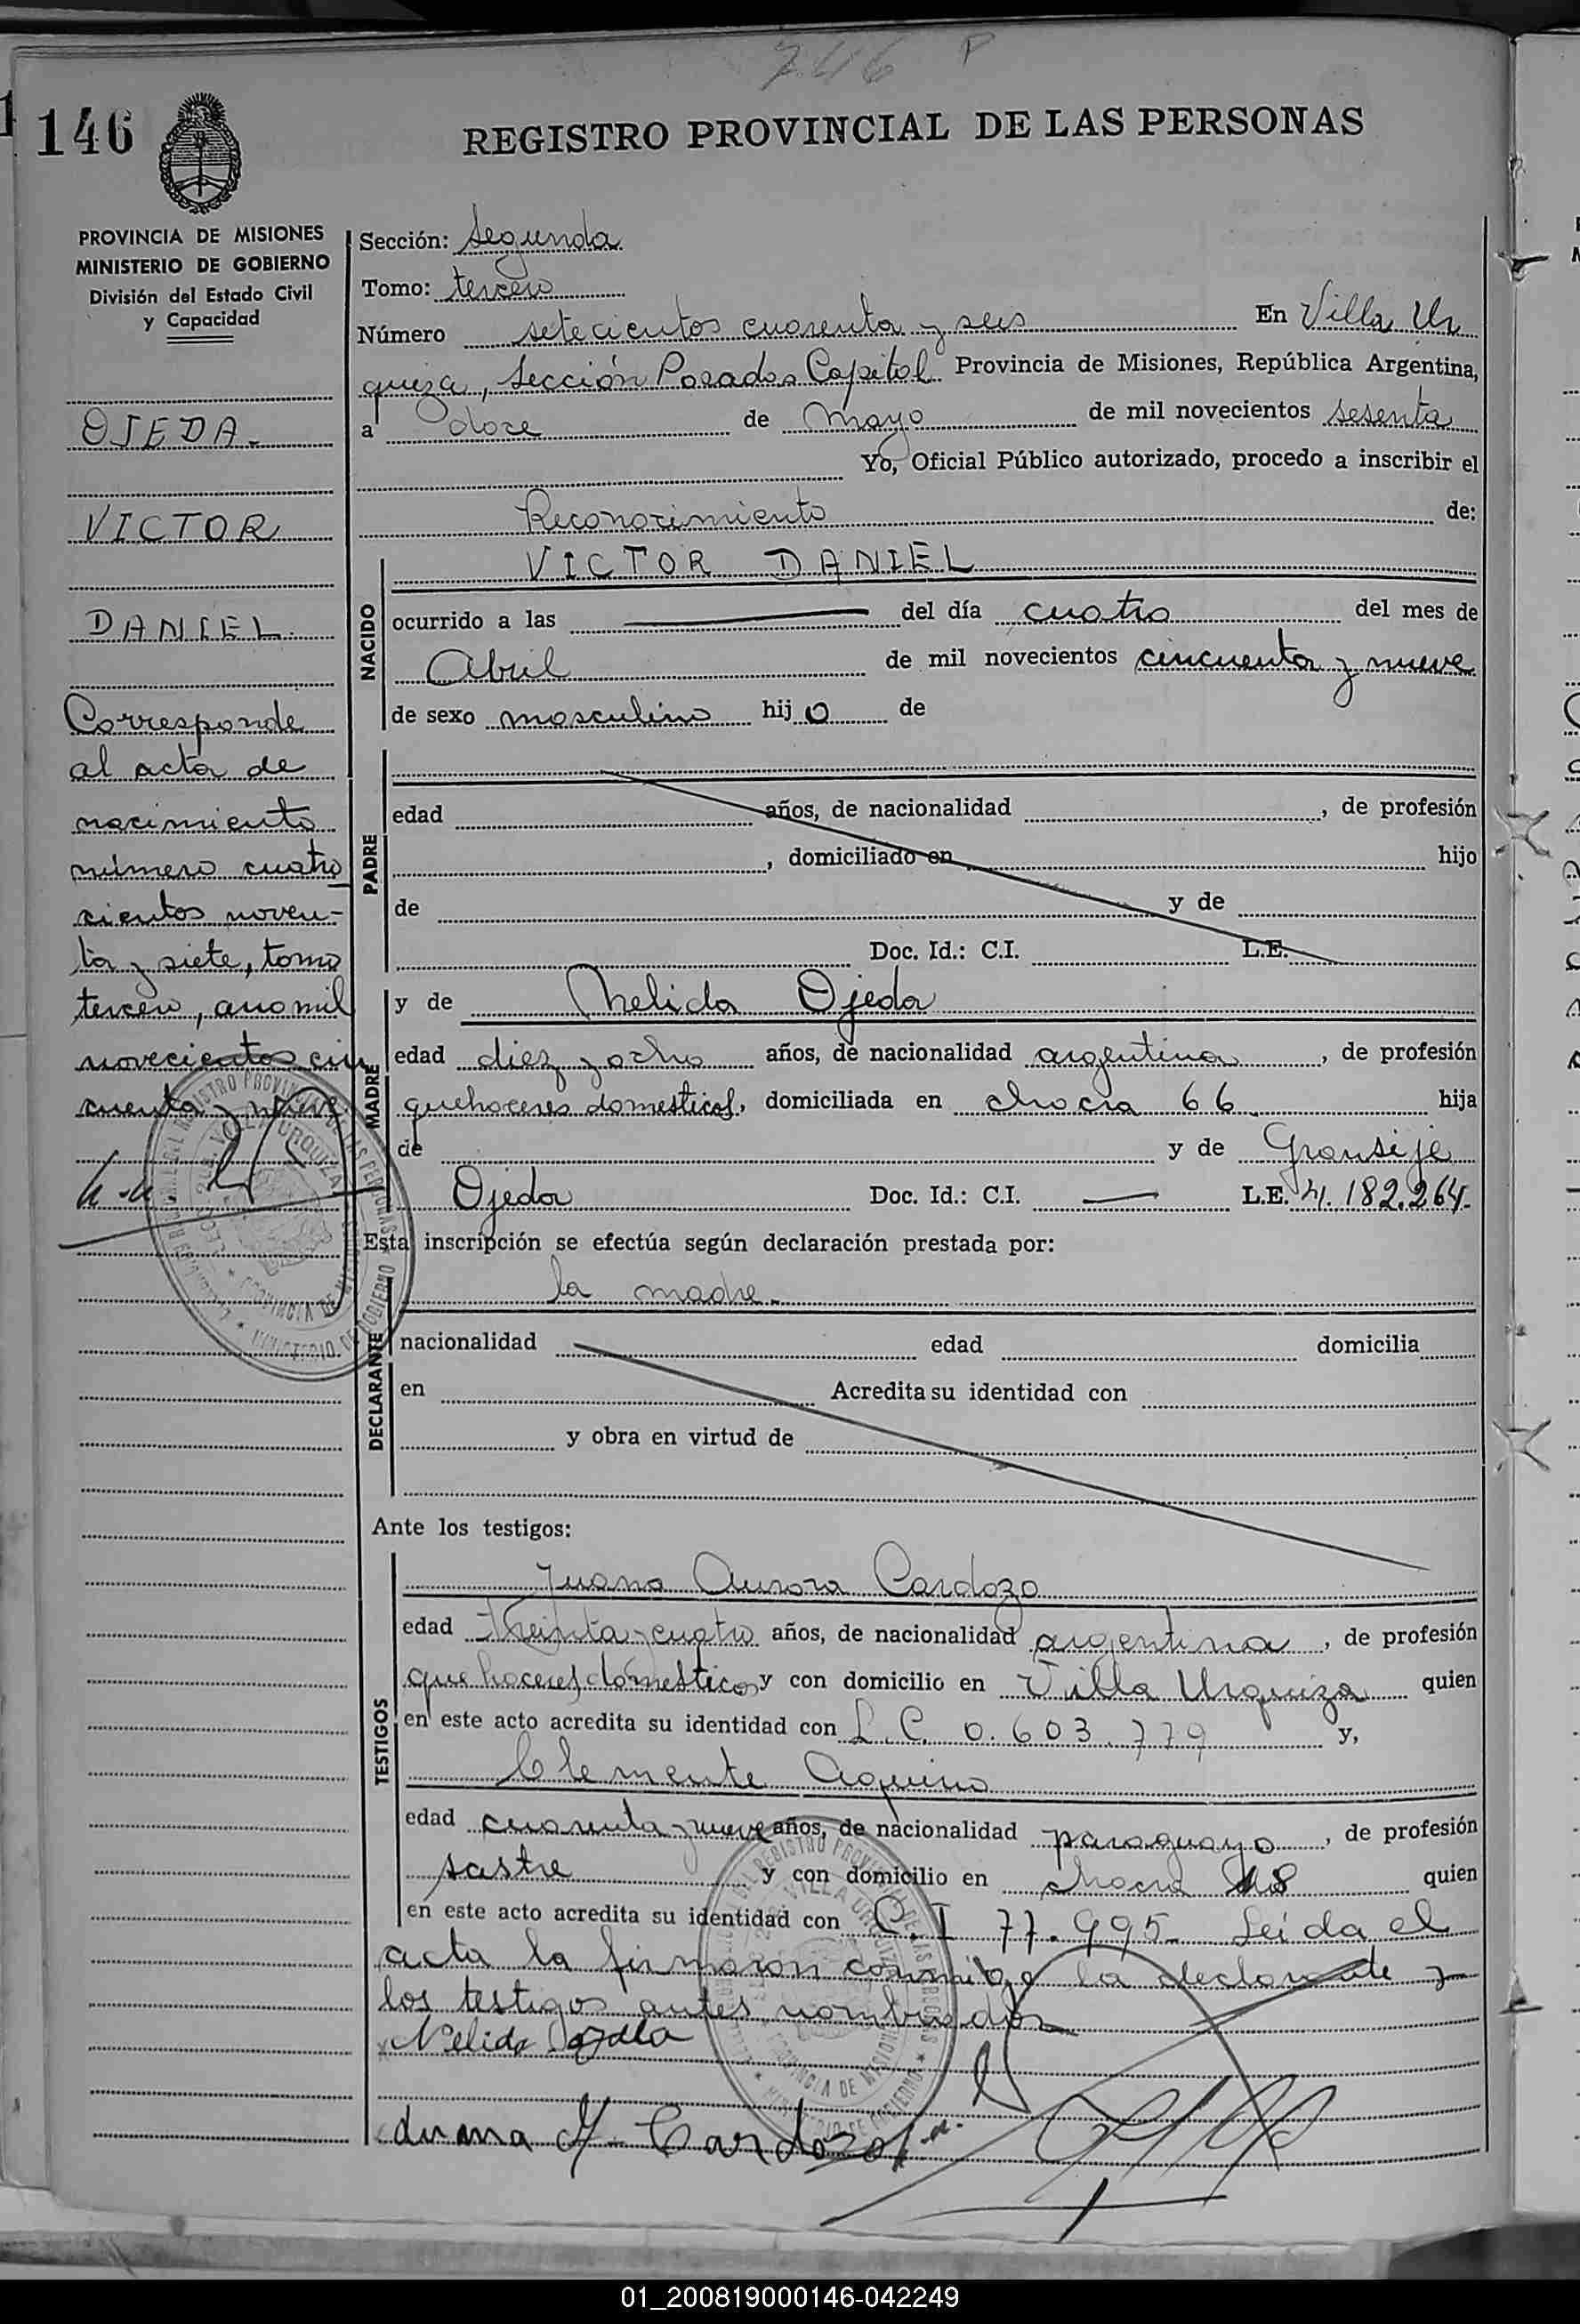 746 P
146
REGISTRO PROVINCIAL DE LAS PERSONAS
PROVINCIA DE MISIONES
MINISTERIO DE GOBIERNO
División del Estado Civil
y Capacidad
OJEDA.-
VICTOR
DANIEL.
Corresponde
al acta de
nacimiento
número cuatro
cientos noven-
ta y siete, tomo
tercero, año mil
novecientos cin
cuenta y nueve
Sección: Segunda
Tomo: tercero
Número setecientos cuarenta y seis En Villa Ur
quiza, Sección Posadas Capital Provincia de Misiones, República Argentina,
a doce de Mayo de mil novecientos sesenta
Yo, Oficial Público autorizado, procedo a inscribir el
Reconocimiento de:
NACIDO
VICTOR DANIEL
ocurrido a las del día cuatro del mes de
Abril de mil novecientos cincuenta y nueve
de sexo masculino hijo de
PADRE
edad años, de nacionalidad , de profesión
, domiciliado en hijo
de y de
Doc. Id.: C.I. L.E.
MADRE
y de Nelida Ojeda
edad diez y ocho años, de nacionalidad argentina , de profesión
quehaceres domesticos, domiciliada en chacra 66 hija
de y de
Ojeda Doc. Id.: C.I. — L.E. 4.182.264.
Esta inscripción se efectúa según declaración prestada por:
la madre.-
DECLARANTE
nacionalidad edad domicilia
en Acredita su identidad con
y obra en virtud de
Ante los testigos:
TESTIGOS
Juana Aurora Cardozo
edad treinta y cuatro años, de nacionalidad argentina , de profesión
quehaceres domesticos y con domicilio en Villa Urquiza quien
en este acto acredita su identidad con L.C. 0.603.779 y,
Clemente Aquino
edad cuarenta y nueve años, de nacionalidad paraguayo , de profesión
sastre y con domicilio en chacra quien
en este acto acredita su identidad con C.I 77.995.- Leida el
acta la firmaron conmigo la declarante y
los testigos antes nombrados
Nelida Ojeda
Cardozo
01_200819000146-042249